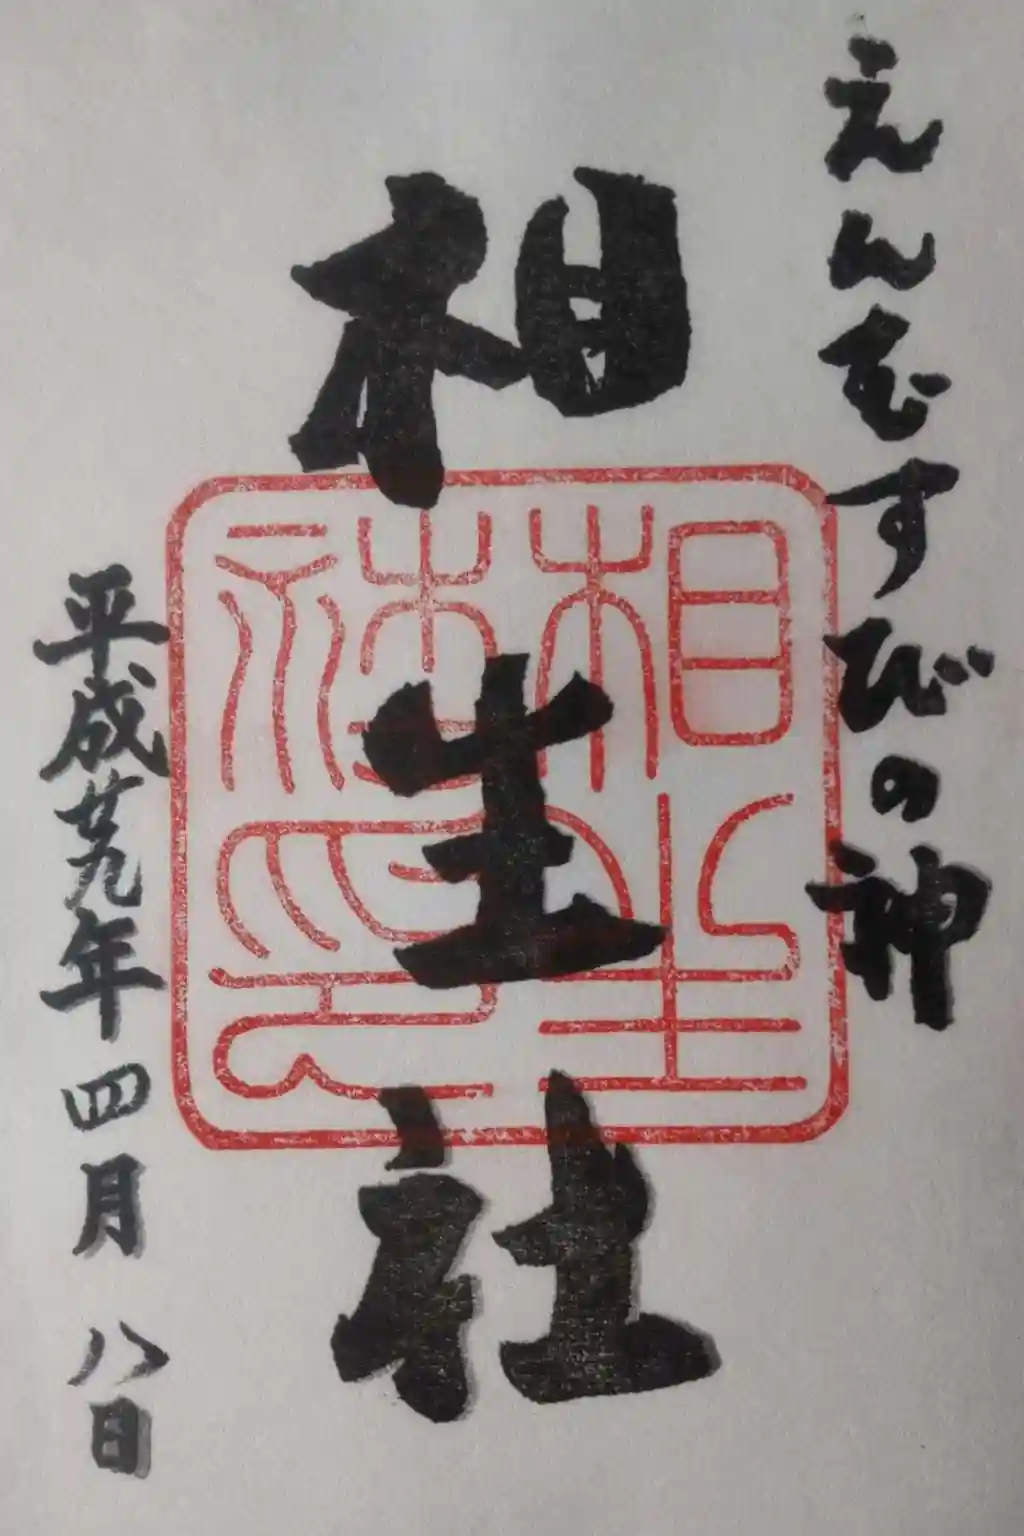 えんむすびの神
相生社
相生社神璽
平成廿九年四月八日